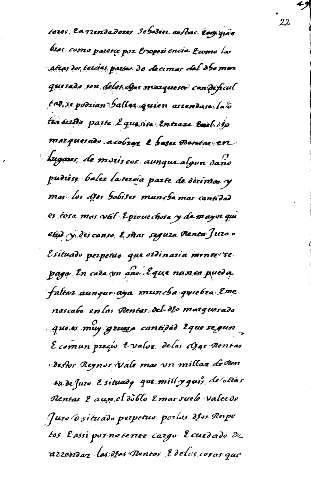 22
bros como parece por Experiencia E como las
otras dos tercias partes de decimas del dho mar
quesado son de los dhos marqueses con dificul
tad se podrian hallar quien arrendase la o
tra tercia parte E quisiese Entrar En el dho
marquesado a cobrar E hazer Rentas en
lugares de moriscos aunque algun daño
pudiese baler la tercia parte de decimas y
mas los dhos habizes muncha mas cantidad
es cosa mas util E provechosa y de mayor qui
etud y descanso E mas segura Renta Juro o
E situado perpetuo que ordinaria mente se
paga En cada un año E que nunca pueda
faltar aunque aya muncha quiebra E me
noscabo en las Rentas del dho marquesado
que es muy gruesa cantidad E que segun
E comun precio E valor de las dhas Rentas
destos Reynos vale mas un millar de Ren
ta de Juro E situado que mill y quis de otras
Rentas E aun el doblo E mas suele valer de
Juro o situado perpetuo por los dhos Respe
tos E assi por no tener cargo E cuidado de
arrendar las dhas Rentas E de las cosas que